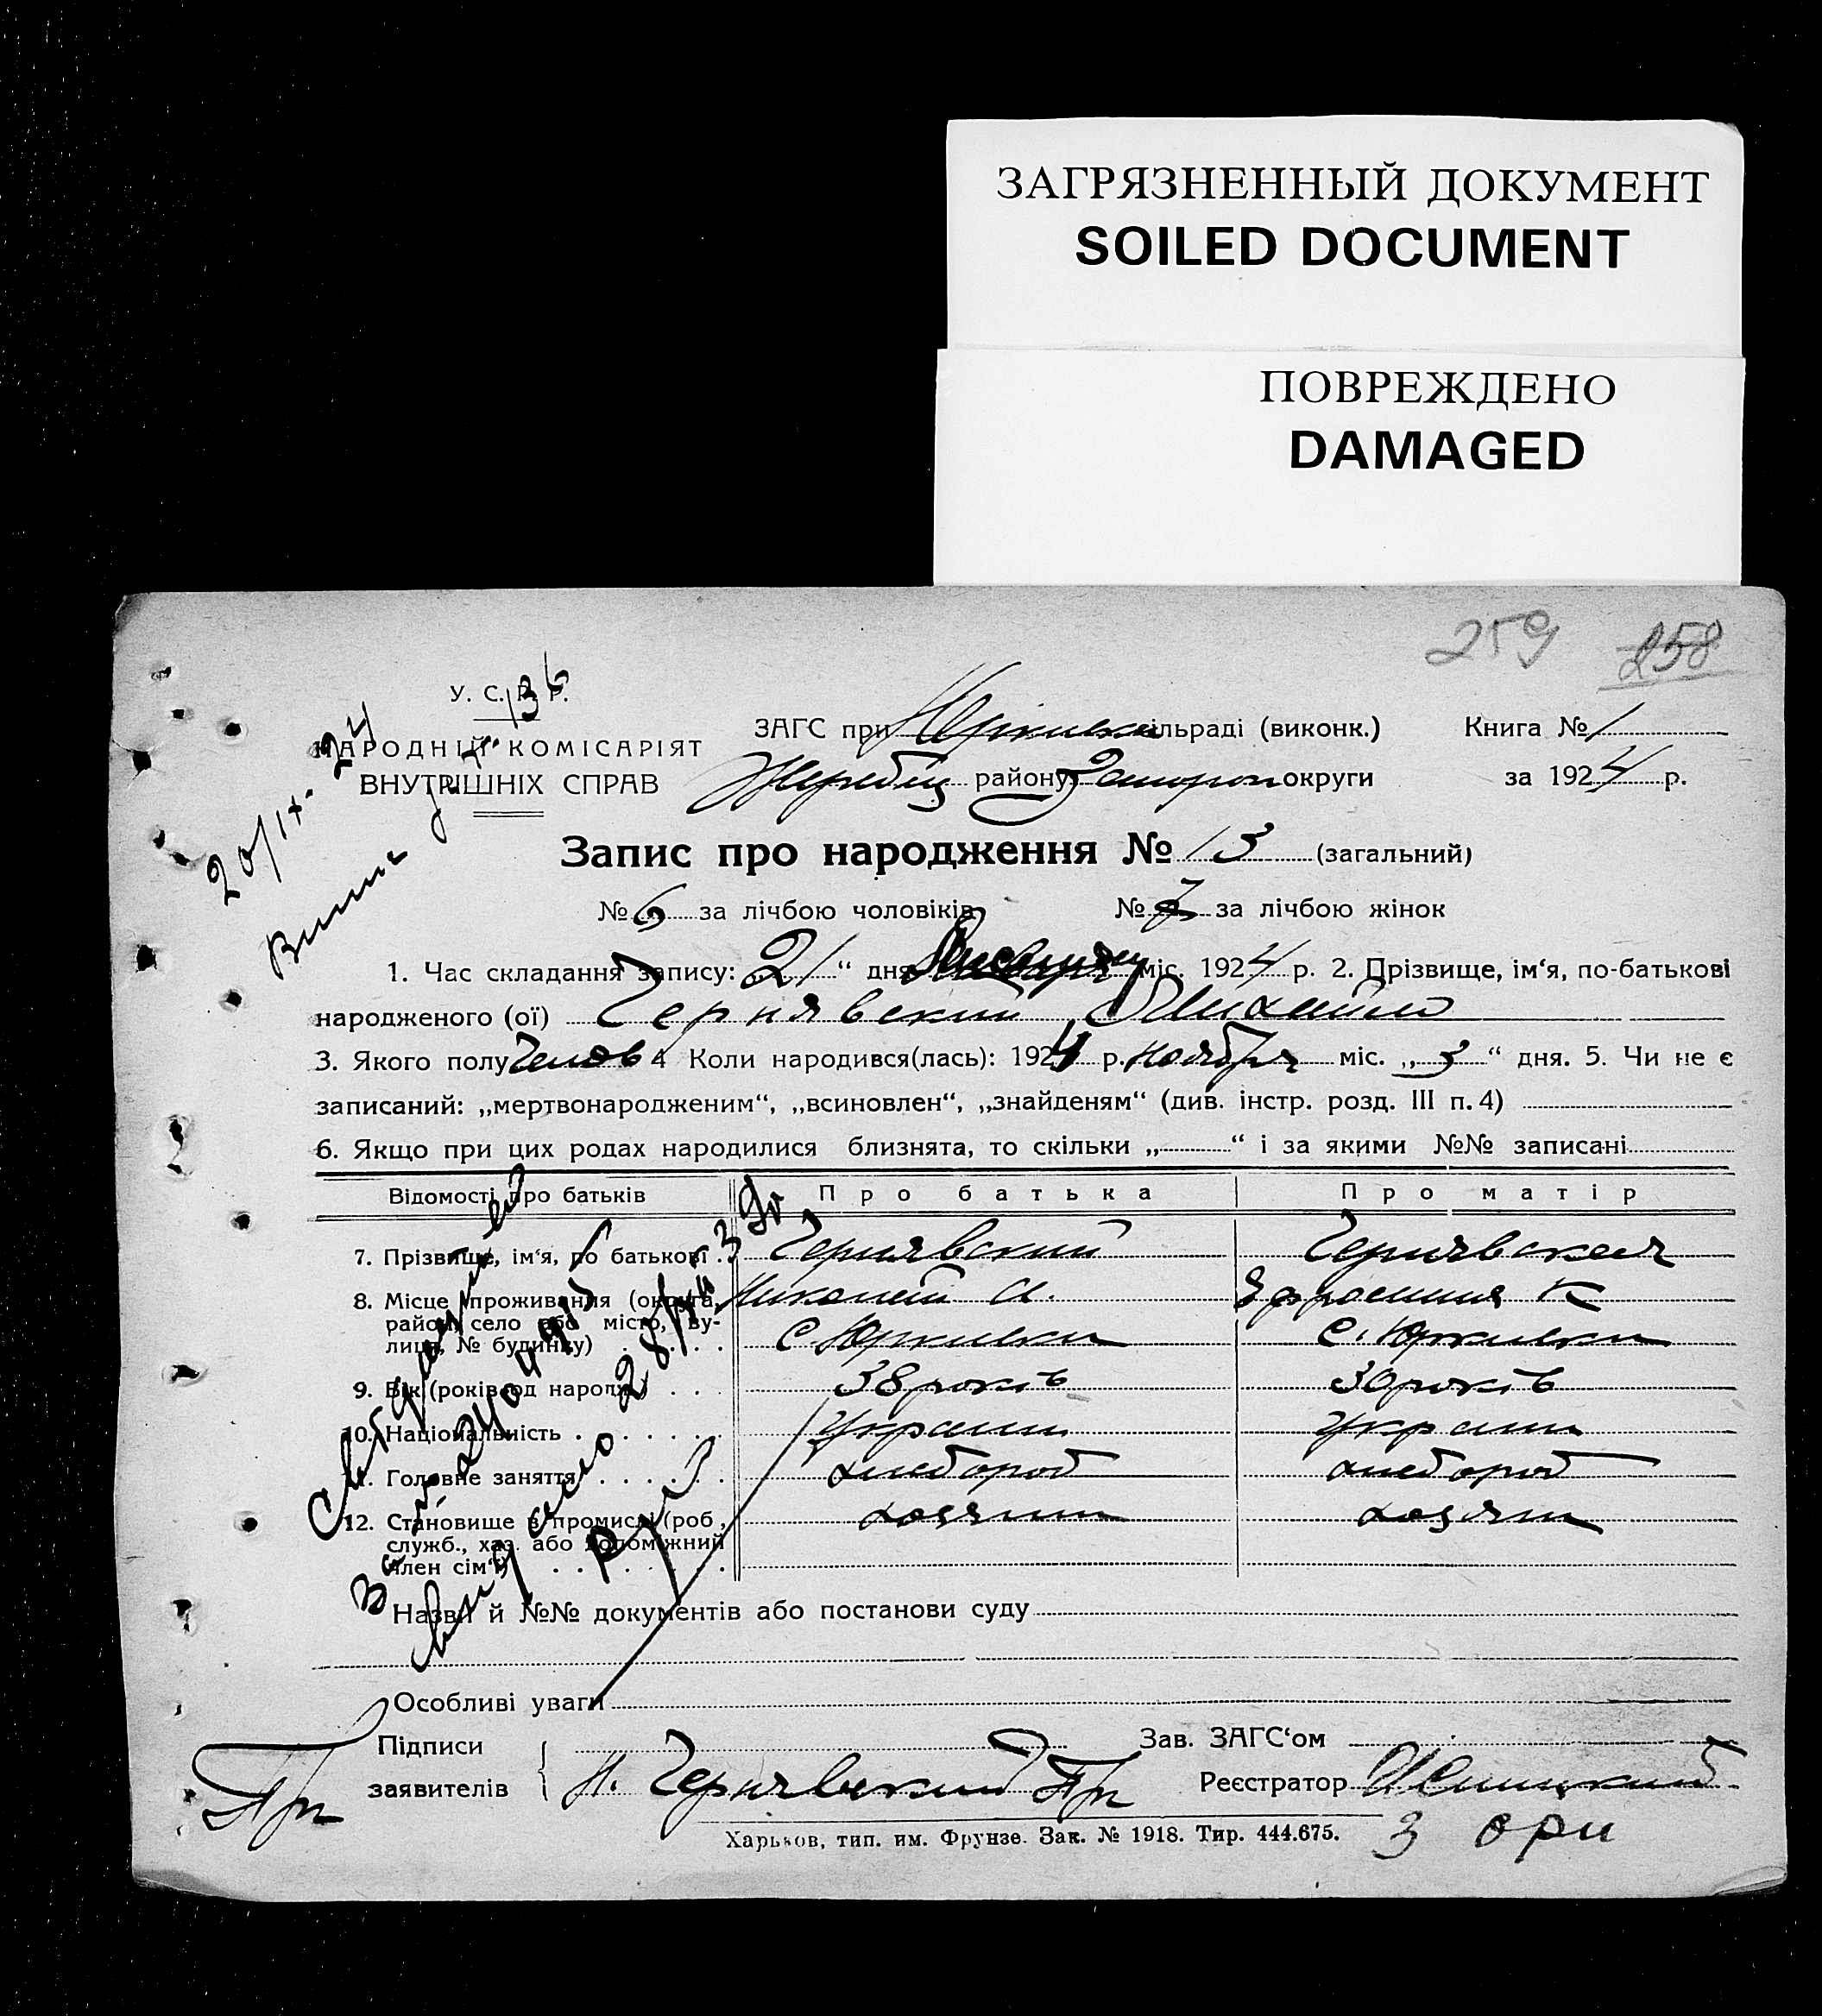 ЗАГРЯЗНЕННЫЙ ДОКУМЕНТ
SOILED DOCUMENT
ПОВРЕЖДЕНО
DAMAGED
259 258
У. С. Р. Р.
НАРОДНІЙ КОМІСАРІЯТ
ВНУТРІШНІХ СПРАВ
20/IX-24
ЗАГС при сільраді (виконк.) Книга № 1
Жеребец району Запорож округи за 1924 р.
Запис про народження № 13 (загальний)
№ 6 за лічбою чоловіків № 7 за лічбою жінок
1. Час складання запису: „21“ дня міс. 1924 р. 2. Прізвище, ім‘я, по-батькові
народженого (ої) Чернявский Михайло
3. Якого полу Челов 4 Коли народився(лась): 1924 р. Ноября міс. „3“ дня. 5. Чи не є
записаний: „мертвонародженим“, „всиновлен“, „знайденям“ (див. інстр. розд. III п. 4)
6. Якщо при цих родах народилися близнята, то скільки „ “ і за якими №№ записані
Відомості про батьків Про батька Про матір
7. Прізвище, ім‘я, по батькові Чернявский Чернявская
8. Місце проживання (округа, Николай И. К
район, село або місто, ву- с. Юркивки с. Юркивки
лиця, № будинку)
9. Вік (років од народж.) 38 років 30 років
10. Національність Украин Украин
11. Головне заняття хлебороб хлебороб
12. Становище в промислі (роб., хозяин хозяин
служб., хаз. або допоміжний
член сім‘ї)
Назви й №№ документів або постанови суду
Особливі уваги
Підписи Зав. ЗАГС‘ом
заявителів Н. Чернявский Реєстратор
Харьков, тип. им. Фрунзе. Зак. № 1918. Тир. 444.675.